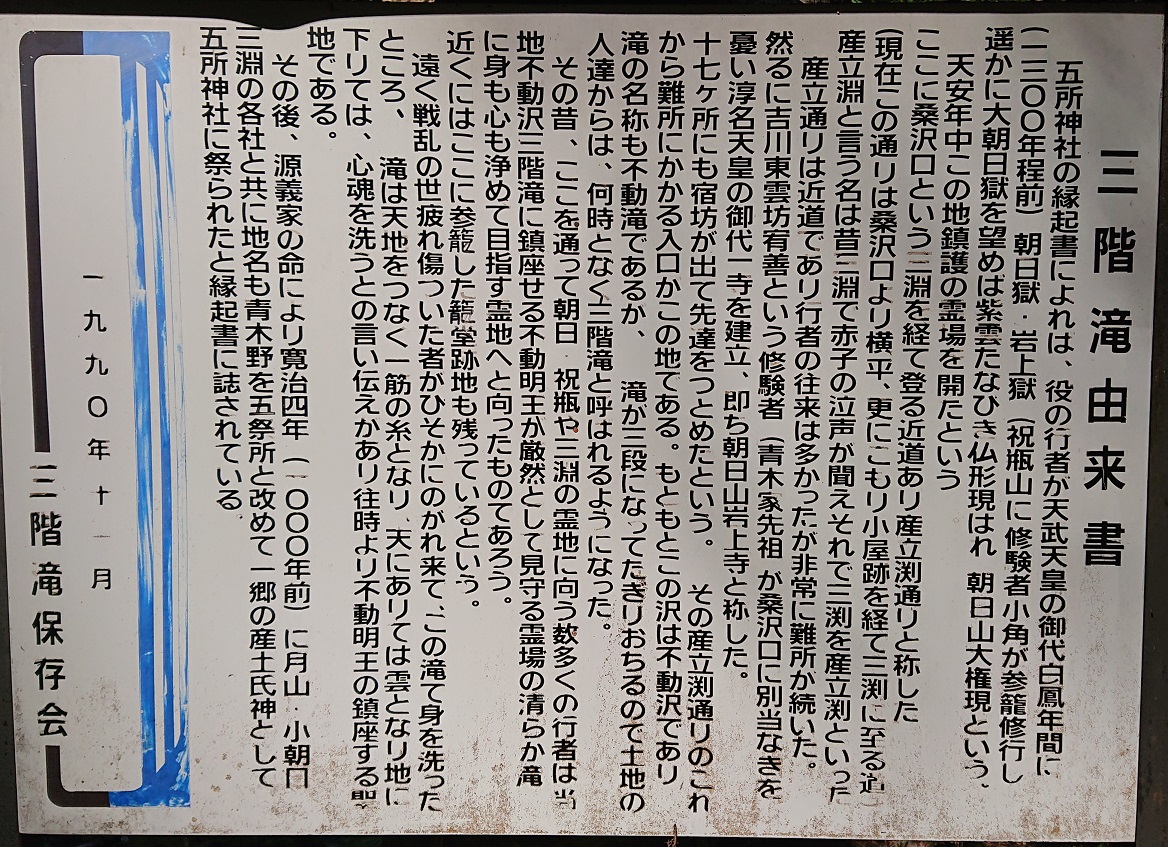 三階滝由来書
五所神社の縁起書によれは、役の行者が天武天皇の御代白鳳年間に
(一三〇〇年程前) 朝日獄・岩上獄 (祝瓶山に修験者小角が参籠修行し
遥かに大朝日獄を望めば紫雲たなひき仏形現はれ 朝日山大権現という。
天安年中この地鎮護の霊場を開たという
ここに桑沢口という三淵を経て登る近道あり産立渕通りと称した
(現在この通りは桑沢口より横平、更にこもり小屋跡を経て三渕に至る道)
産立淵と言う名は昔三淵で赤子の泣声が聞えそれで三渕を産立渕といった
産立通りは近道であり行者の往来は多かったが非常に難所が続いた。
然るに吉川東雲坊宥善という修験者 (青木家先祖 が桑沢口に別当なきを
憂い淳名天皇の御代一寺を建立、即ち朝日山岩上寺と称した。
十七ヶ所にも宿坊が出て先達をつとめたという。 その産立渕通りのこれ
から難所にかかる入口かこの地てある。もともとこの沢は不動沢であり
滝の名称も不動滝であるか、 滝が三段になってたぎりおちるので土地の
人達からは、何時となく三階滝と呼はれるようになった。
その昔、ここを通って朝日 祝瓶や三淵の霊地に向う数多くの行者は当
地不動沢三階滝に鎮座せる不動明王が厳然として見守る霊場の清らか滝
に身も心も浄めて目指す霊地へと向ったものてあろう。
近くにはここに参籠した籠堂跡地も残っているという。
遠く戦乱の世疲れ傷ついた者がひそかにのがれ来て、この滝て身を洗った
ところ、 滝は天地をつなく一筋の糸となり、天にありては雲となり地に
下りては、心魂を洗うとの言い伝えかあり往時より不動明王の鎮座する聖
地である。
その後、源義家の命により寛治四年 (一〇〇〇年前) に月山・小朝日
三淵の各社と共に地名も青木野を五祭所と改めて一郷の産土氏神として
五所神社に祭られたと縁起書に誌されている。
一九九〇年十一月
三階滝保存会